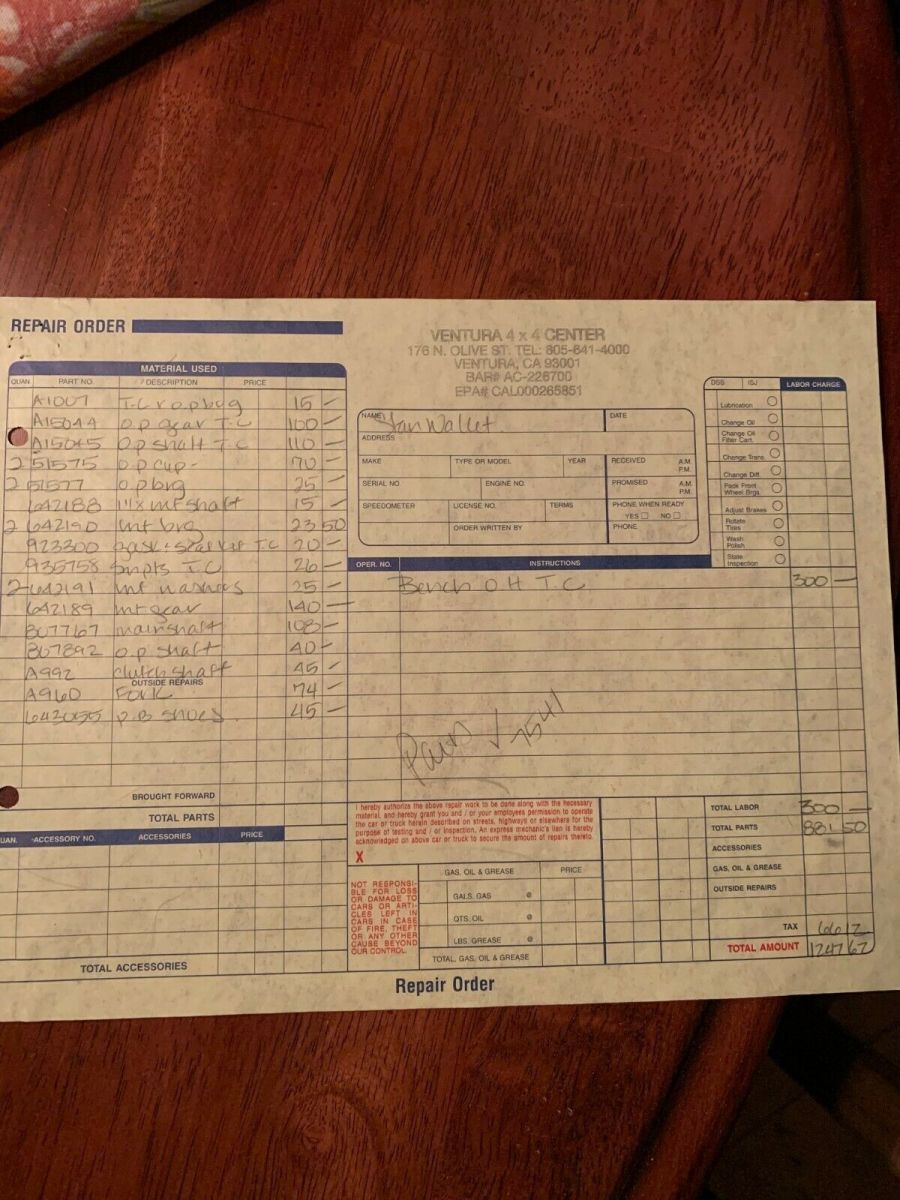 REPAIR ORDER
MATERIAL USED
QUAN. PART NO. DESCRIPTION PRICE
A1007 T.C. 15 —
A15044 O.P gear T.C 100 —
A15045 O.P shaft T.C 110 —
2 51575 O.P cup - 70 —
2 51577 O.P brg 25 —
642188 int shaft 15 —
2 642190 Int brg 23 50
923300 T.C 20 —
935758 T.C 26 —
2 642191 int washers 25 —
642189 int gear 140 —
807767 mainshaft 108 —
867892 O.P shaft 40 —
A992 clutch shaft 45 —
OUTSIDE REPAIRS
A960 Fork 74 —
643055 P.B shoes 45 —
BROUGHT FORWARD
TOTAL PARTS
QUAN. ACCESSORY NO. ACCESSORIES PRICE
TOTAL ACCESSORIES
VENTURA 4 x 4 CENTER
176 N. OLIVE ST. TEL: 805-641-4000
VENTURA, CA 93001
BAR# AC-226700
EPA# CAL000265851
NAME Stan DATE
ADDRESS
MAKE TYPE OR MODEL YEAR RECEIVED A.M. P.M.
SERIAL NO. ENGINE NO. PROMISED A.M. P.M.
SPEEDOMETER LICENSE NO. TERMS PHONE WHEN READY
YES NO
ORDER WRITTEN BY PHONE
LABOR CHARGE
Lubrication
Change Oil
Change Oil
Filter Cart.
Change Trans.
Change Diff.
Pack Front
Wheel Brgs.
Adjust Brakes
Rotate
Tires
Wash
Polish
State
Inspection
OPER. NO. INSTRUCTIONS
Bench O H T.C 300 —
7541
I hereby authorize the above repair work to be done along with the necessary
material, and hereby grant you and / or your employees permission to operate
the car or truck herein described on streets, highways or elsewhere for the
purpose of testing and / or inspection. An express mechanic's lien is hereby
acknowledged on above car or truck to secure the amount of repairs thereto.
X
NOT RESPONSI-
BLE FOR LOSS
OR DAMAGE TO
CARS OR ARTI-
CLES LEFT IN
CARS IN CASE
OF FIRE, THEFT
OR ANY OTHER
CAUSE BEYOND
OUR CONTROL.
GAS, OIL & GREASE PRICE
GALS. GAS @
QTS. OIL @
LBS. GREASE @
TOTAL, GAS, OIL & GREASE
TOTAL LABOR 300 —
TOTAL PARTS 881 50
ACCESSORIES
GAS, OIL & GREASE
OUTSIDE REPAIRS
TAX 66 12
TOTAL AMOUNT 1247 67
Repair Order